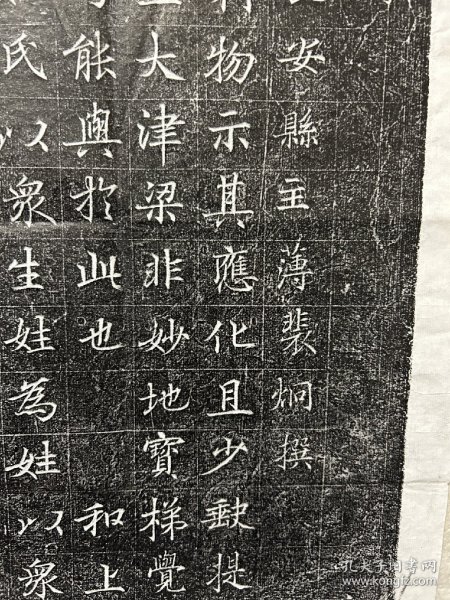 安縣主薄裴炯撰
物示其應化且少缺提
大津梁非妙地寶梯覺
能與於此也 和上
氏以眾生姓為姓以眾
孔夫子旧书网